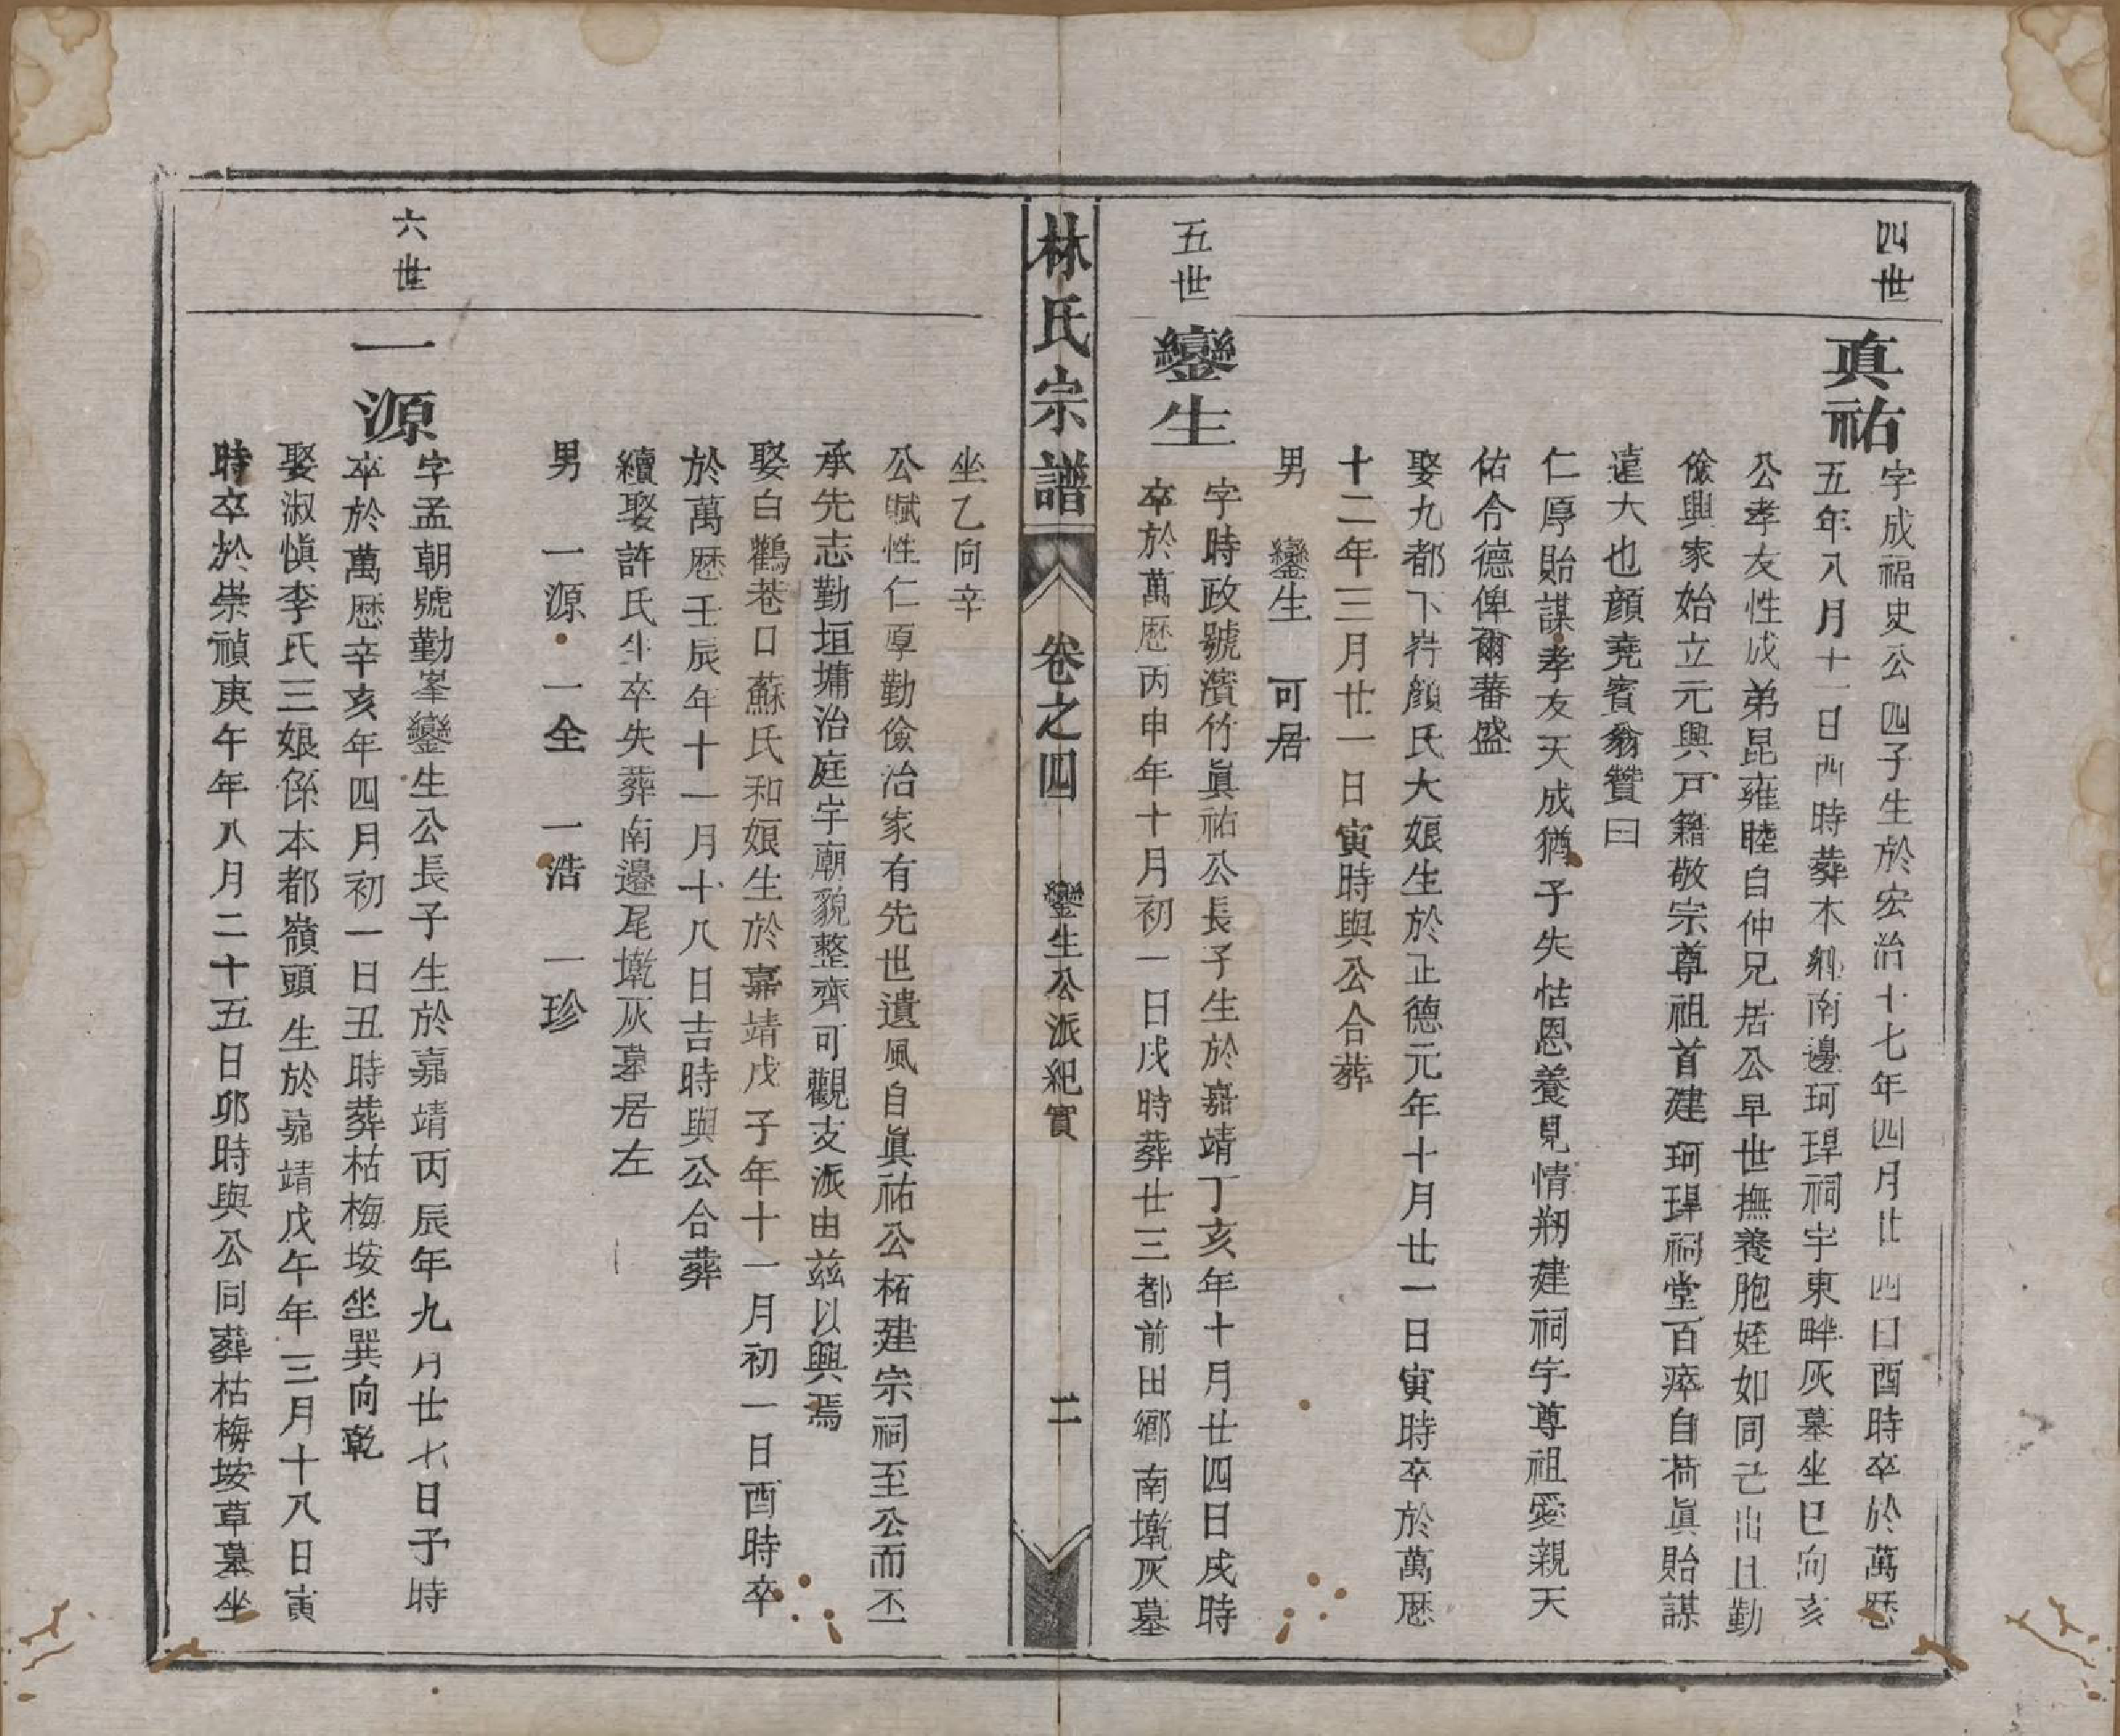 四世
真祐
字成福史公四子生於宏治十七年四月廿四日酉時卒於萬歷
五年八月十一日酉時葬本鄉南邊珂瑆祠宇東畔灰墓坐巳向亥
公孝友性成弟昆雍睦自仲兄居公早世撫養胞姪如同己出且勤
儉興家始立元興戸籍敬宗尊祖首建珂瑆祠堂百瘁自荷真貽謀
遠大也顏堯賓翁贊曰
仁厚貽謀孝友天成猶子失怙恩養見情剏建祠宇尊祖愛親天
佑令德俾爾蕃盛
娶九都下岸顏氏大娘生於正德元年十月廿一日寅時卒於萬歷
十二年三月廿一日寅時與公合葬
男 鑾生 可居
五世
鑾生
字時政號濱竹真祐公長子生於嘉靖丁亥年十月廿四日戌時
卒於萬歷丙申年十月初一日戌時葬廿三都前田鄉南墩灰墓
林氏宗譜
卷之四
鑾生公派紀實
二
坐乙向辛
公賦性仁厚勤儉治家有先世遺風自真祐公柘建宗祠至公而丕
承先志勤垣墉治庭宇廟貌整齊可觀支派由兹以興焉
娶白鶴巷口蘇氏和娘生於嘉靖戊子年十一月初一日酉時卒
於萬歷壬辰年十一月十八日吉時與公合葬
續娶許氏生卒失葬南邊尾墩灰墓居左
男 一源 一全 一浩 一珍
六世
一源
字孟朝號勤峯鑾生公長子生於嘉靖丙辰年九月廿七日予時
卒於萬歷辛亥年四月初一日丑時葬枯梅垵坐巽向乾
娶淑慎李氏三娘係本都嶺頭生於嘉靖戊午年三月十八日寅
時卒於崇禎庚午年八月二十五日卯時與公同葬枯梅垵草墓坐